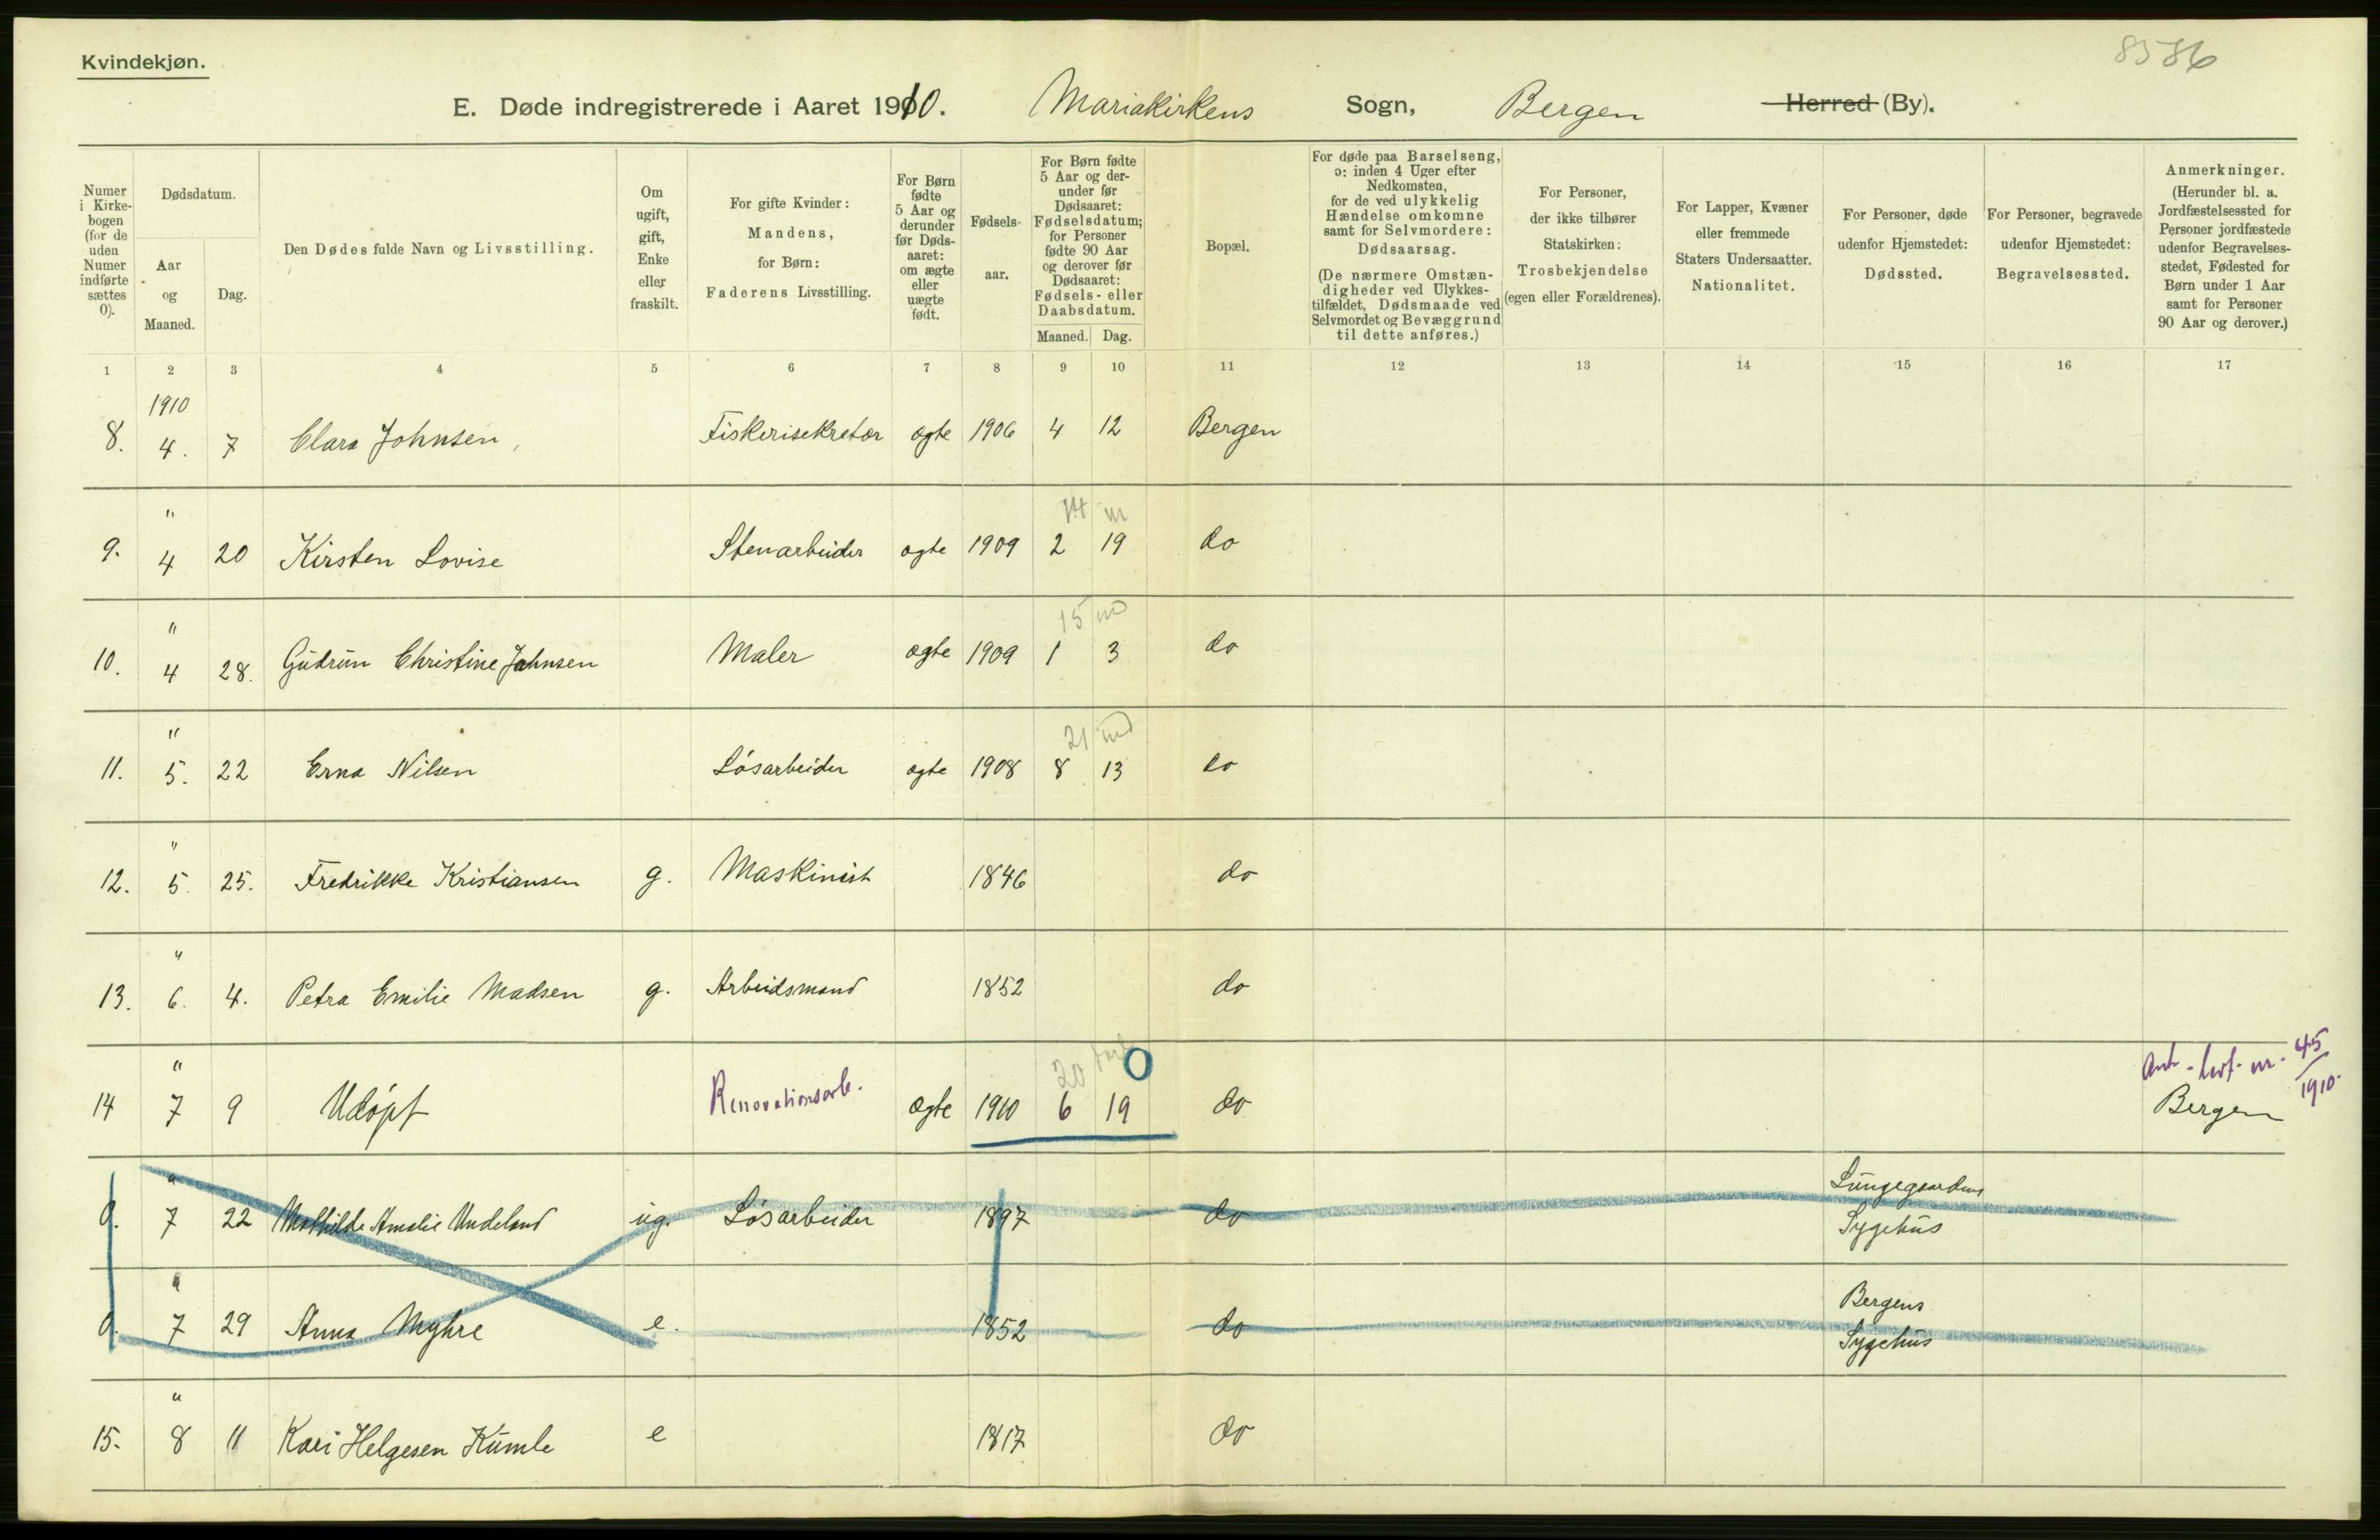 8586
Kvindekjøn.
E. Døde indregistrerede i Aaret 1910. Mariakirkens Sogn, Bergen Herred (By).
Numer i Kirke-bogen (for de uden Numer indførte sættes 0).
Dødsdatum.
Aar og Maaned.
Dag.
Den Dødes fulde Navn og Livsstilling.
Om ugift, gift, Enke eller fraskilt.
For gifte Kvinder: Mandens, for Børn: Faderens Livsstilling.
For Børn fødte 5 Aar og derunder før Døds-aaret: om ægte eller uægte født.
Fødsels-aar.
For Børn fødte 5 Aar og der-under før Dødsaaret: Fødselsdatum; for Personer fødte 90 Aar og derover før Dødsaaret: Fødsels- eller Daabsdatum.
Maaned. Dag.
Bopæl.
For døde paa Barselseng, ɔ: inden 4 Uger efter Nedkomsten, for de ved ulykkelig Hændelse omkomne samt for Selvmordere: Dødsaarsag. (De nærmere Omstæn-digheder ved Ulykkes-tilfældet, Dødsmaade ved Selvmordet og Bevæggrund til dette anføres.)
For Personer, der ikke tilhører Statskirken: Trosbekjendelse (egen eller Forældrenes).
For Lapper, Kvæner eller fremmede Staters Undersaatter. Nationalitet.
For Personer, døde udenfor Hjemstedet: Dødssted.
For Personer, begravede udenfor Hjemstedet: Begravelsessted.
Anmerkninger. (Herunder bl. a. Jordfæstelsessted for Personer jordfæstede udenfor Begravelses-stedet, Fødested for Børn under 1 Aar samt for Personer 90 Aar og derover.)
1 2 3 4 5 6 7 8 9 10 11 12 13 14 15 16 17
1910
8. 4. 7 Clara Johnsen, Fiskerisekretær ægte 1906 4 12 Bergen
" 14 m
9. 4 20 Kirsten Lovise Stenarbeider ægte 1909 2 19 do
" 15 md
10. 4 28. Gudrun Christine Johnsen Maler ægte 1909 1 3 do
" 21 md
11. 5. 22 Erna Nilsen Løsarbeider ægte 1908 8 13 do
"
12. 5. 25. Fredrikke Kristiansen g. Maskinist 1846 do
"
13. 6. 4. Petra Emilie Madsen g. Arbeidsmand 1852 do
" 20 0 45
14 7 9 Udøpt Renovationsarb. ægte 1910 6 19 do Bergen 1910.
" Lungegaardens
0. 7 22 Mathilde Amalie Undeland ug. Løsarbeider 1897 do Sygehus
" Bergens
0. 7 29 Anna Myhre e. 1852 do Sygehus
"
15. 8 11 Kari Helgesen Kumle e 1817 do